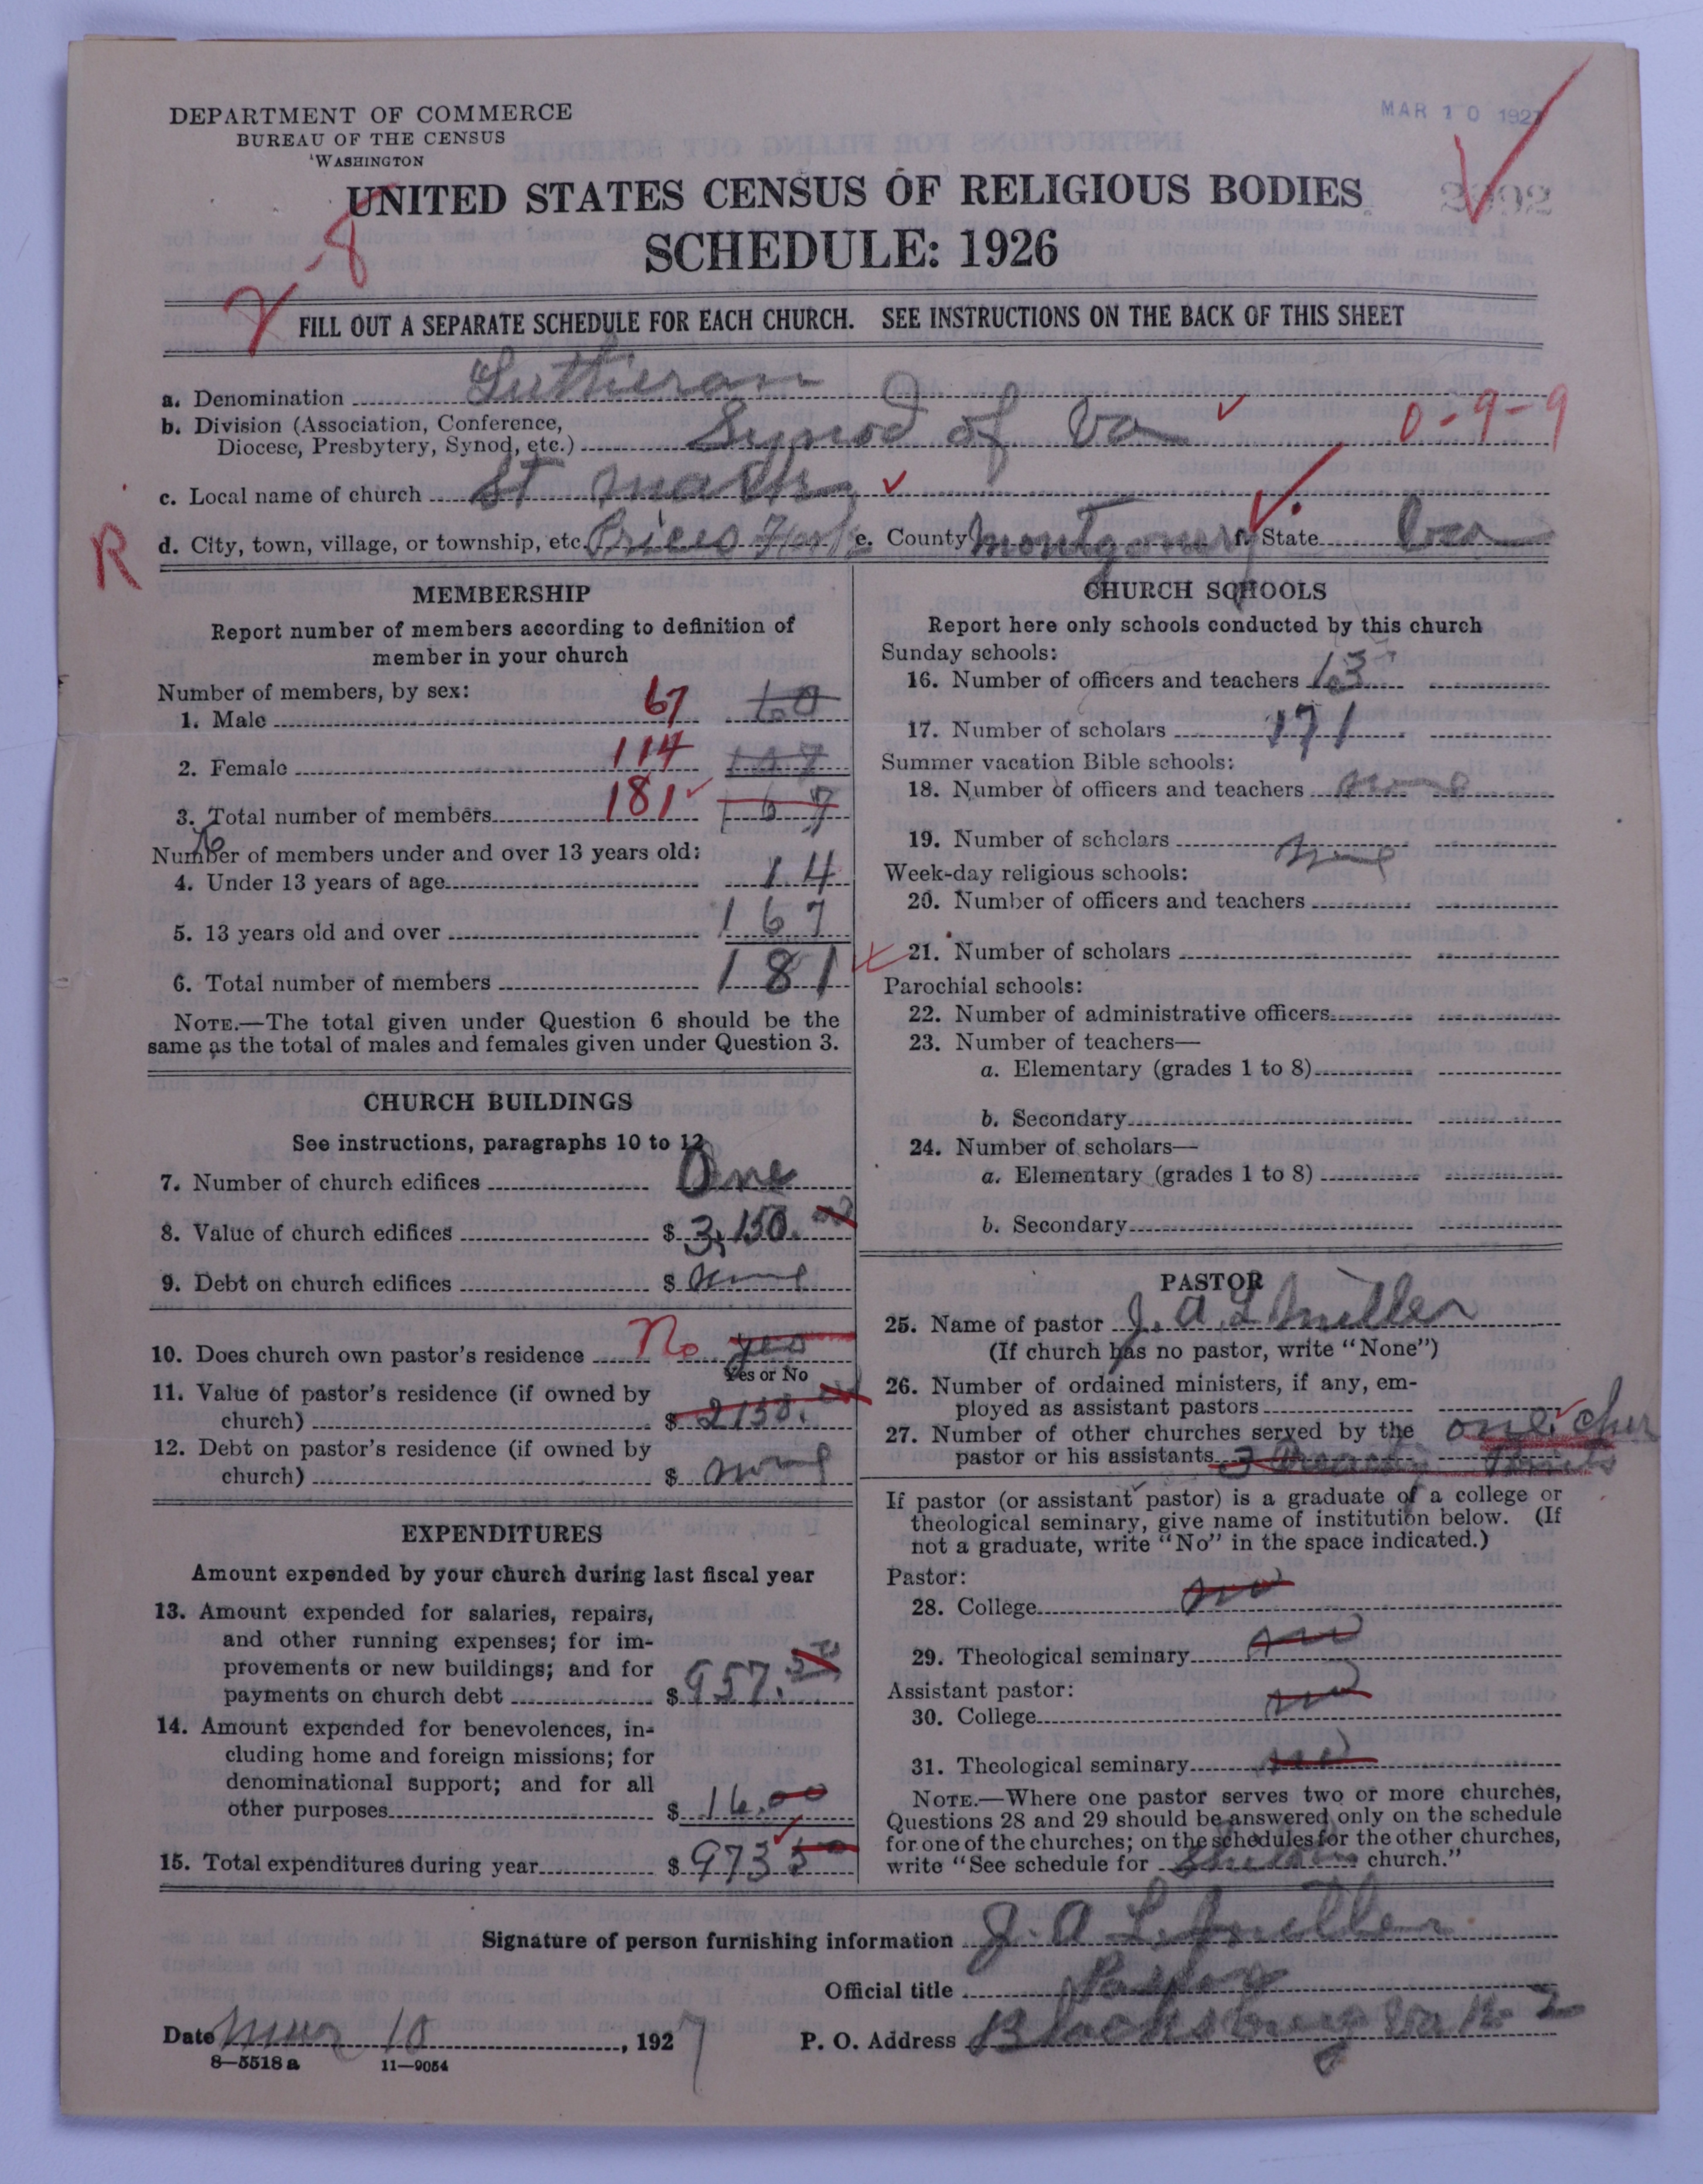 MAR 10 1927
DEPARTMENT OF COMMERCE
BUREAU OF THE CENSUS
WASHINGTON
UNITED STATES CENSUS OF RELIGIOUS BODIES
SCHEDULE: 1926
-8
FILL OUT A SEPARATE SCHEDULE FOR EACH CHURCH. SEE INSTRUCTIONS ON THE BACK OF THIS SHEET
a. Denomination Lutheran
b. Division (Association, Conference,
Diocese, Presbytery, Synod, etc.) Synod of Va 0-9-9
c. Local name of church St Mark
R
d. City, town, village, or township, etc. Prices Fork e. County Montgomery f. State Va
MEMBERSHIP
Report number of members according to definition of
member in your church
Number of members, by sex:
1. Male 67 60
2. Female 114 107
3. Total number of members 181 167
Number of members under and over 13 years old:
4. Under 13 years of age 14
5. 13 years old and over 167
6. Total number of members 181
NOTE.—The total given under Question 6 should be the
same as the total of males and females given under Question 3.
CHURCH BUILDINGS
See instructions, paragraphs 10 to 12
7. Number of church edifices One
8. Value of church edifices $ 3,150.00
9. Debt on church edifices $ none
10. Does church own pastor's residence No yes
Yes or No
11. Value of pastor's residence (if owned by
church) $ 2150.
12. Debt on pastor's residence (if owned by
church) $ none
EXPENDITURES
Amount expended by your church during last fiscal year
13. Amount expended for salaries, repairs,
and other running expenses; for im-
provements or new buildings; and for
payments on church debt $ 957.50
14. Amount expended for benevolences, in-
cluding home and foreign missions; for
denominational support; and for all
other purposes $ 16.00
15. Total expenditures during year $ 973 50
CHURCH SCHOOLS
Report here only schools conducted by this church
Sunday schools:
16. Number of officers and teachers 13
17. Number of scholars 171
Summer vacation Bible schools:
18. Number of officers and teachers none
19. Number of scholars none
Week-day religious schools:
20. Number of officers and teachers
21. Number of scholars
Parochial schools:
22. Number of administrative officers
23. Number of teachers—
a. Elementary (grades 1 to 8)
b. Secondary
24. Number of scholars—
a. Elementary (grades 1 to 8)
b. Secondary
PASTOR
25. Name of pastor J. A. L. Miller
(If church has no pastor, write "None")
26. Number of ordained ministers, if any, em-
ployed as assistant pastors
27. Number of other churches served by the one chur
pastor or his assistants 3 Preaching Points
If pastor (or assistant pastor) is a graduate of a college or
theological seminary, give name of institution below. (If
not a graduate, write "No" in the space indicated.)
Pastor:
28. College no
29. Theological seminary no
Assistant pastor:
30. College no
31. Theological seminary no
NOTE.—Where one pastor serves two or more churches,
Questions 28 and 29 should be answered only on the schedule
for one of the churches; on the schedules for the other churches,
write "See schedule for church."
Signature of person furnishing information J. A. L. Miller
Official title Pastor
Date Mar 10, 1927 P. O. Address Blacksburg Va R-2
8—5518 a 11—9054